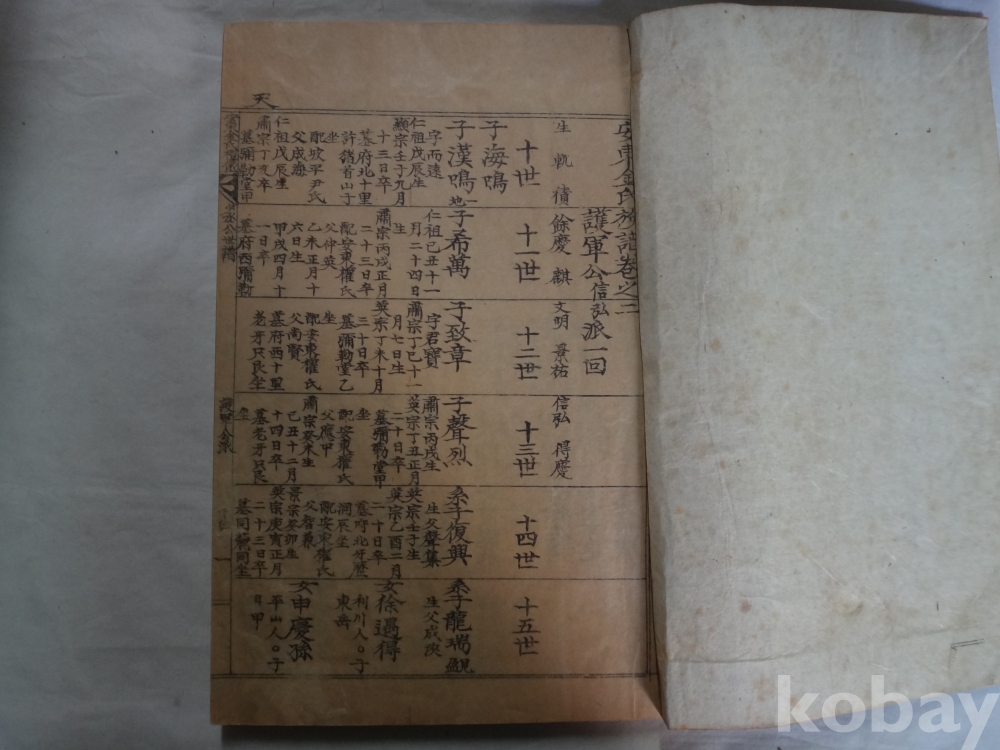 安東金氏族譜卷之二
護軍公信弘派一回
生 軌 積 餘慶 麒 文明 景祐 信弘 得慶
十世
十一世
十二世
十三世
十四世
十五世
天
子海鳴
子漢鳴
字而遠
仁祖戊辰生
顯宗壬子九月
十三日卒
墓府北十里
坐
配坡平尹氏
父成海
仁祖戊辰生
肅宗丁亥卒
墓彌勒堂甲
子希萬
仁祖己丑十一
月二十四日
生
肅宗丙戌正月
二十三日卒
配安東權氏
父仲英
乙未正月十
六日生
甲戌四月十
一日卒
墓府西彌勒
子致章
字君寶
肅宗丁巳十一
月七日生
英宗丁未十月
三十日卒
墓彌勒堂乙
坐
配安東權氏
父尚賢
墓府西十里
老牙只艮坐
子聲烈
肅宗丙戌生
英宗丁丑正月
二十日卒
墓彌勒堂甲
坐
配安東權氏
父應甲
肅宗癸未生
己丑十二月
十四日卒
墓老牙只艮
坐
系子復興
生父聲集
英宗壬子生
英宗乙酉二月
二十日卒
洞辰坐
配安東權氏
景宗癸卯生
英宗庚寅正月
二十三日卒
系子龍瑞
生父成浹
女徐遇得
利川人○子
東岳
女申慶孫
平山人○子
日甲
kobay